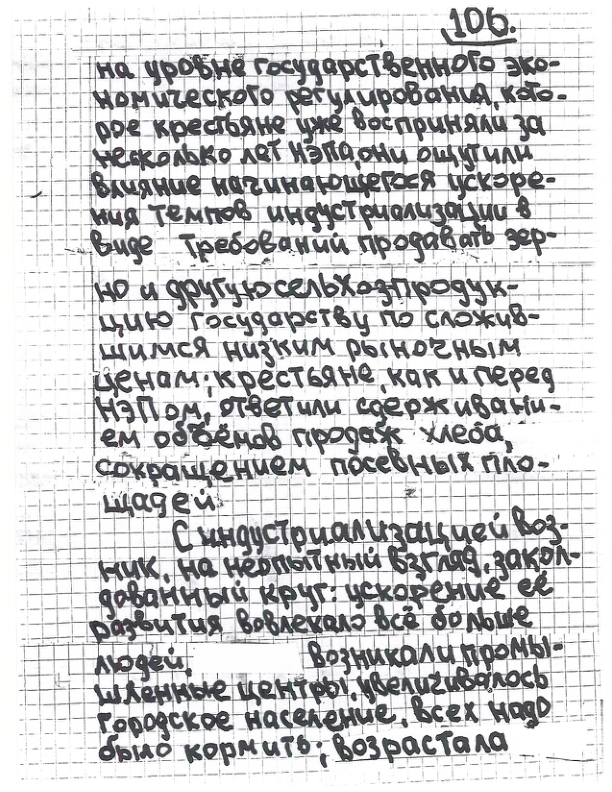 106.
на уровне государственного эко-
номического регулирования, кото-
рое крестьяне уже восприняли за
несколько лет НЭПа, они ощутили
влияние начинающегося ускоре-
ния темпов индустриализации в
виде требований продавать зер-
но и другую сельхозпродук-
цию государству по сложив-
шимся низким рыночным
ценам; крестьяне, как и перед
НЭПом, ответили сдерживани-
ем объёмов продаж хлеба,
сокращением посевных пло-
щадей.
С индустриализацией воз-
ник, на неопытный взгляд, закол-
дованный круг: ускорение её
развития вовлекало всё больше
людей, возникали промы-
шленные центры, увеличивалось
городское население, всех надо
было кормить; возрастала